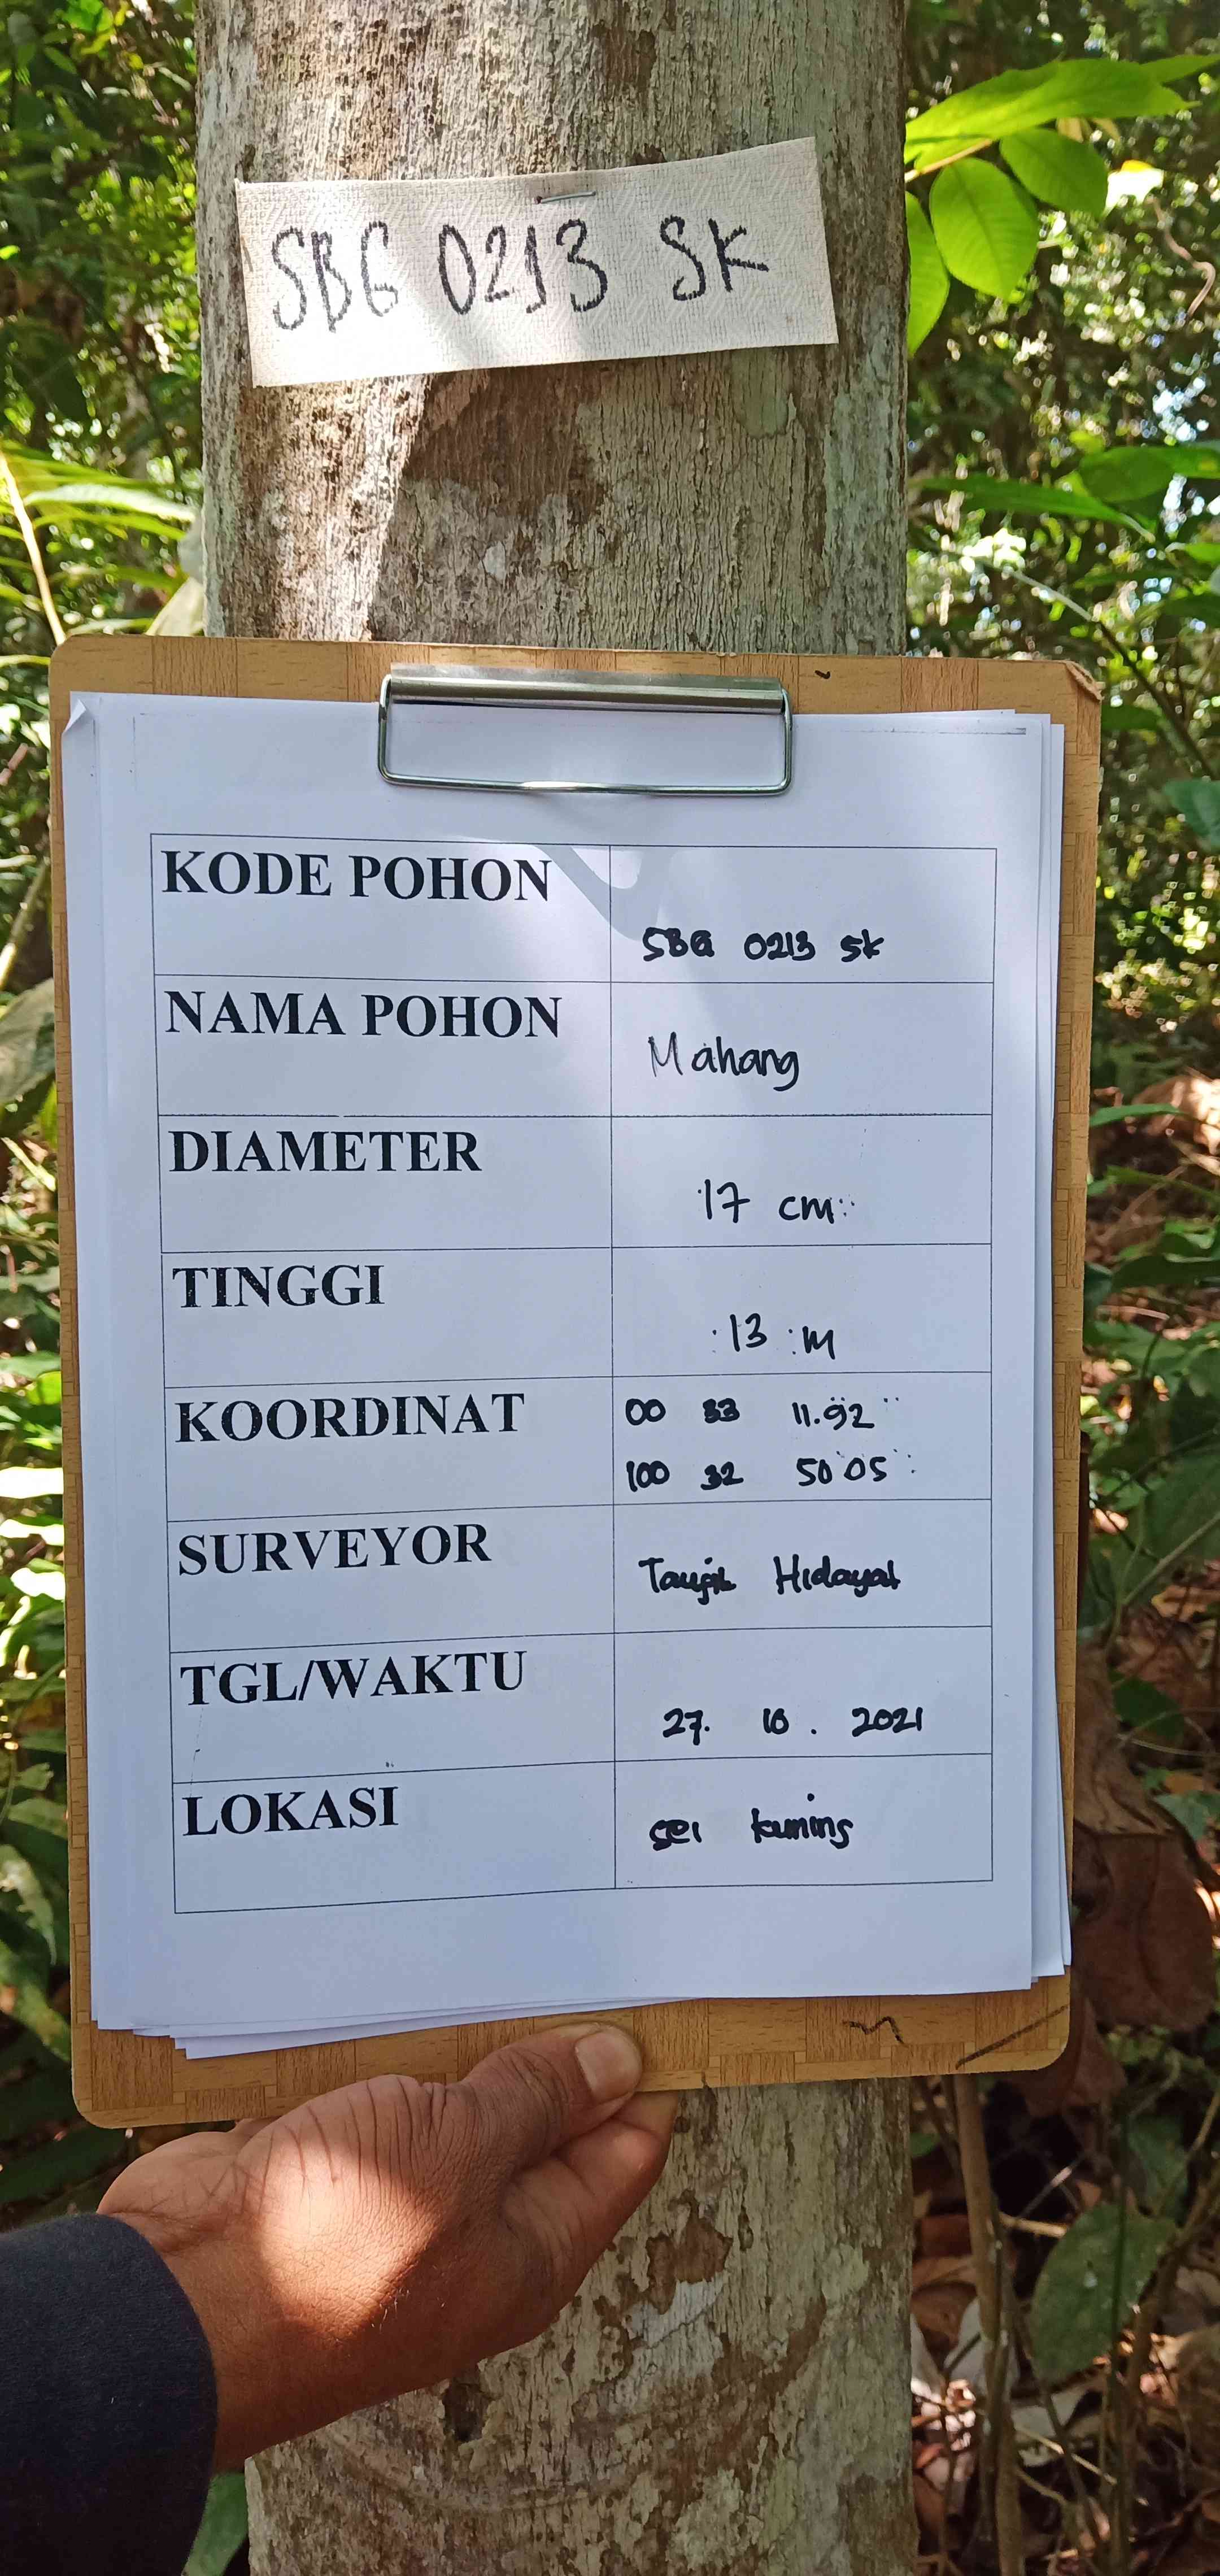 SBG 0213 SK
KODE POHON
SBG 0213 SK
NAMA POHON
Mahang
DIAMETER
17 cm
TINGGI
13 m
KOORDINAT
00 33 11.92"
100 32 50.05"
SURVEYOR
Taufik Hidayat
TGL/WAKTU
27. 10. 2021
LOKASI
sei kuning